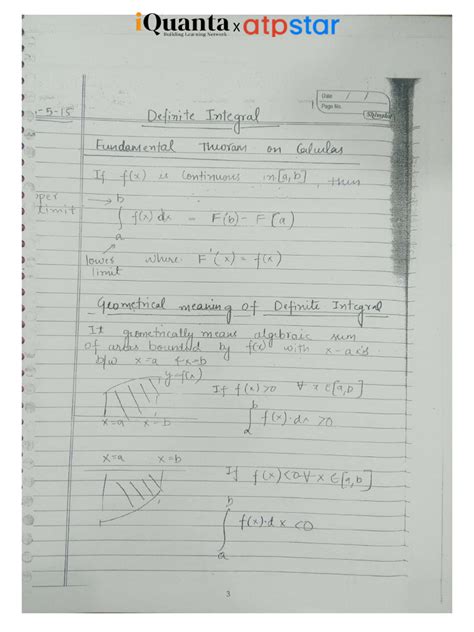 iQuanta x atpstar
Building Learning Network
Date / /
Page No.
-5-15
Definite Integral
Fundamental Theoram on Calculas
If f(x) is continuous in [a,b], then
per
limit
b
∫ f(x) dx = F(b) - F(a)
a
lower
limit
where F'(x) = f(x)
Geometrical meaning of Definite Integral
It geometrically means algebraic sum
of areas bounded by f(x) with x-axis
b/w x=a & x=b
y=f(x)
If f(x)>0 ∀ x ∈[a,b]
b
∫ f(x)·dx >0
a
x=a x=b
x=a x=b
If f(x)<0 ∀ x ∈[a,b]
b
∫ f(x)·dx <0
a
3